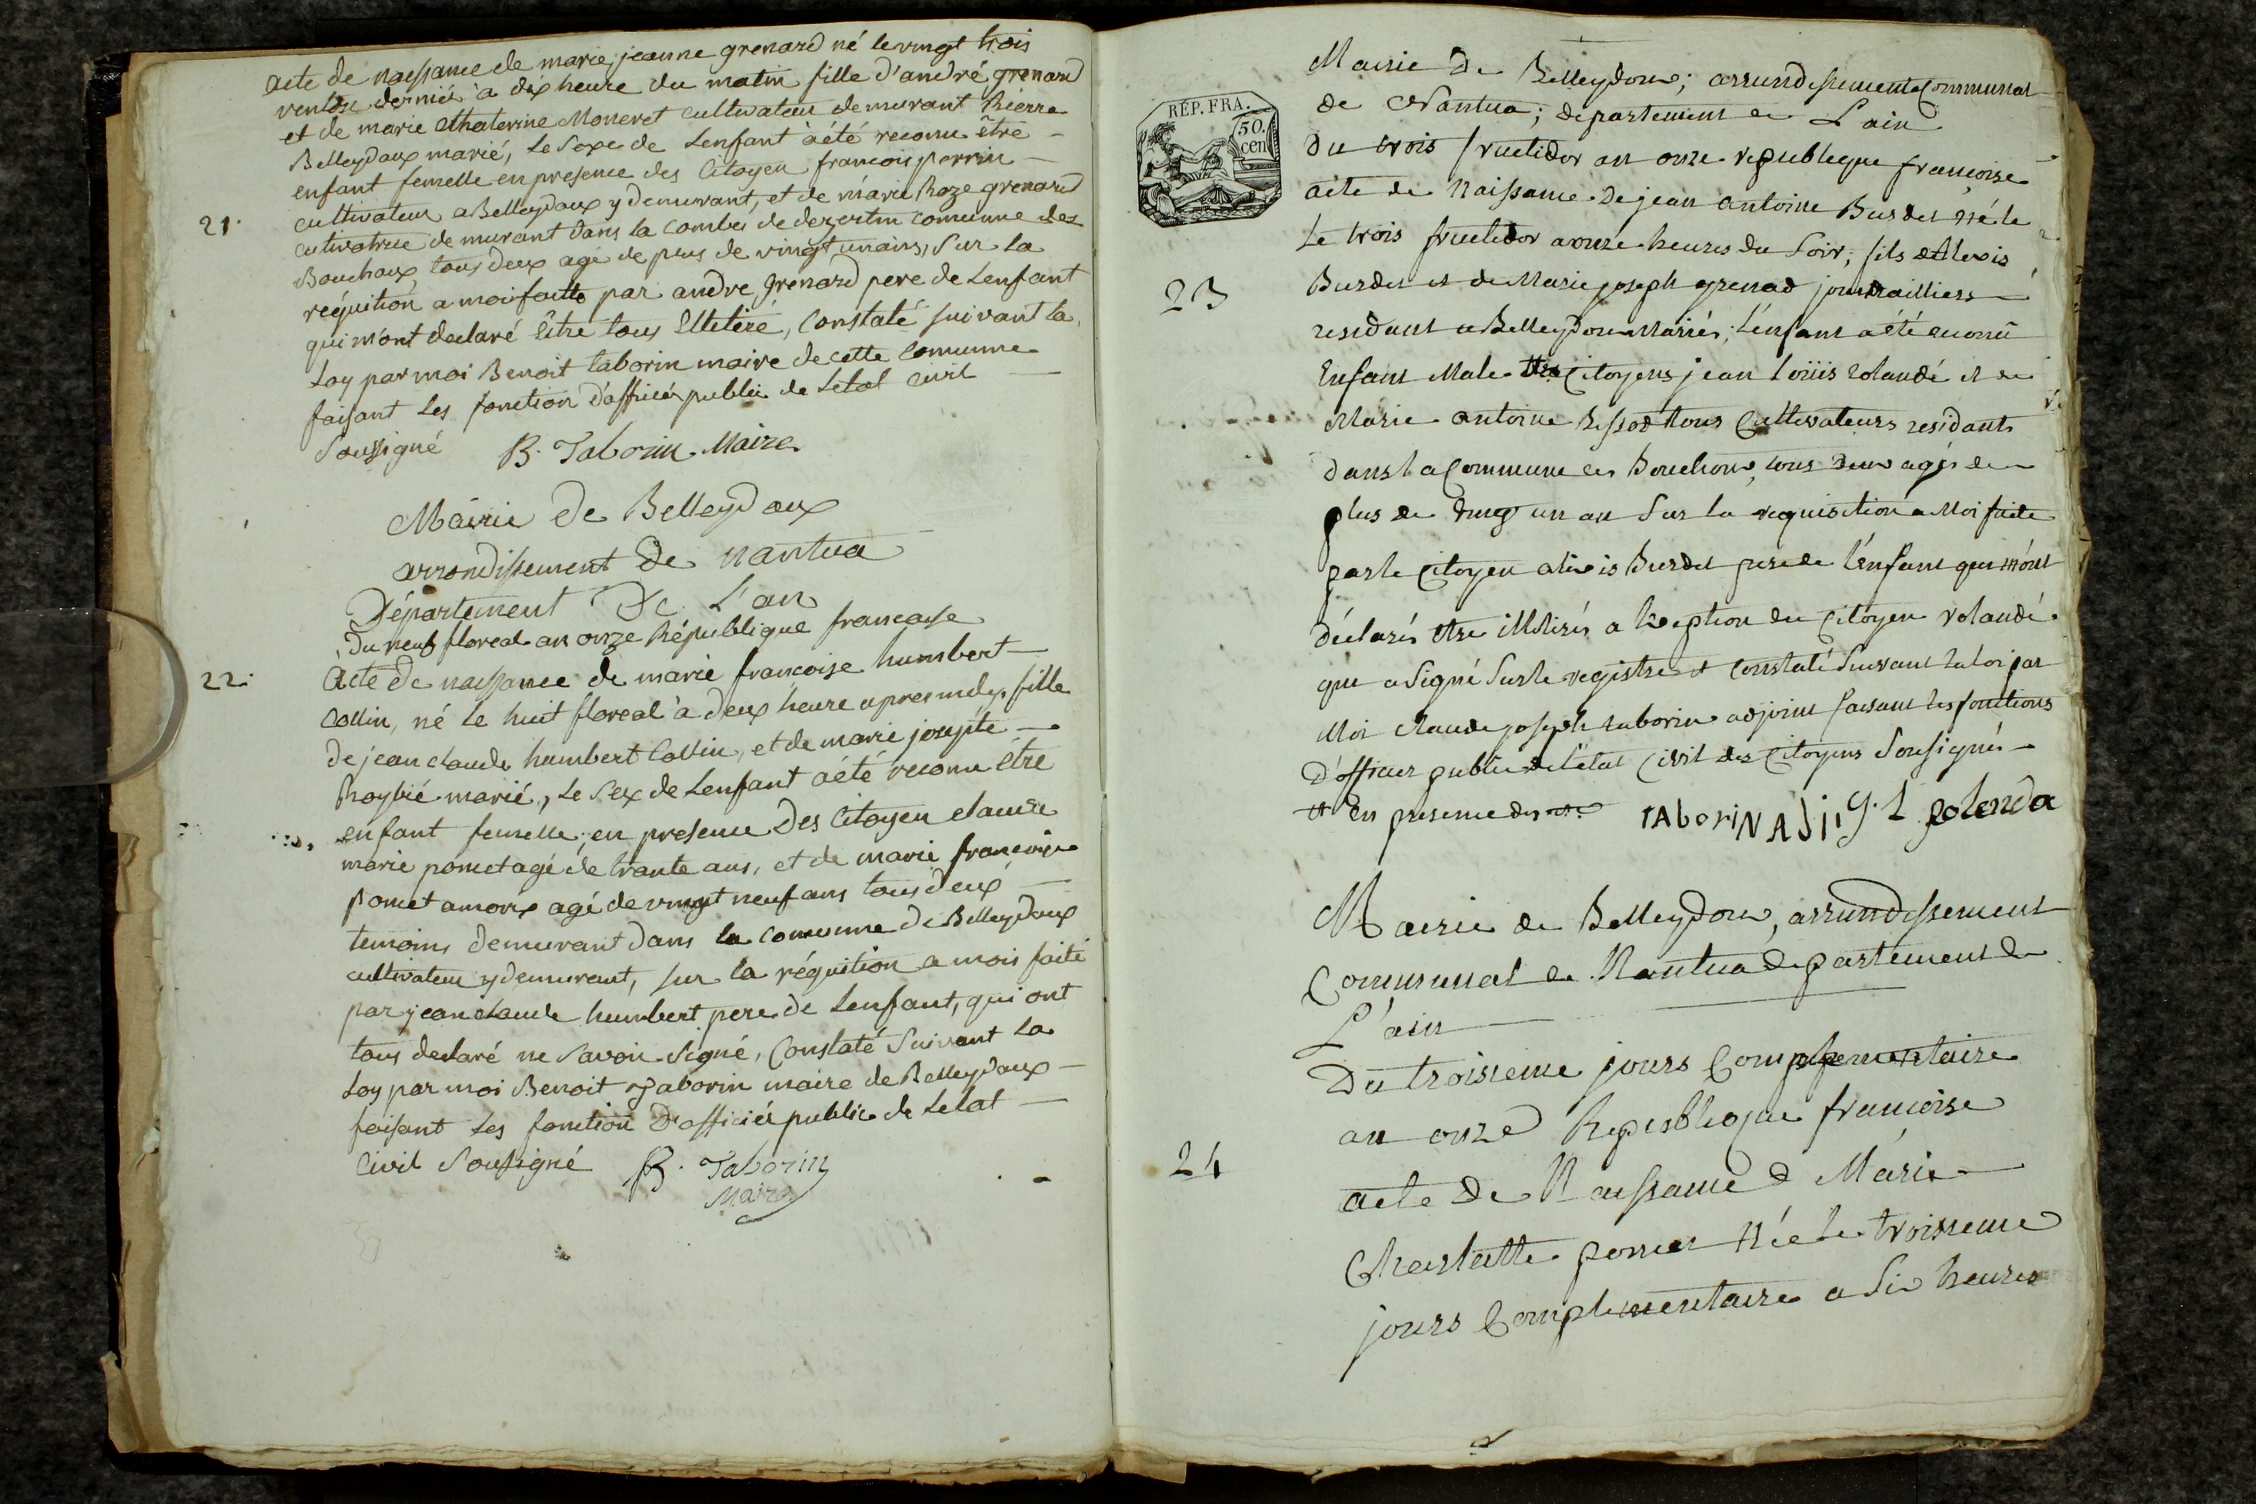 acte de naissance de marie jeanne grenard né le vingt trois
ventose dernié à dix heure du matin fille d'andré grenard
et de marie Chaterine Moneret cultivateur demurant Pierre
Belleydoux marié, le Sexe de Lenfant àété reconu être
enfant femelle en presence des Citoyen francois perrin
cultivateur a Belleydoux y demurant, et de marie Roze grenard
21.
cultivatrice demurant dans la combe de dezertin comunne des
Bouchoux tous deux agé de plus de vingt unains, Sur la
réquition a moi faitte par andre grenard pere de Lenfant
qui m'ont declaré être tous Elletéré, Constaté suivant la
Loy par moi Benoit taborin maire de cette Comunne
faisant les fonction d'officiér public de Letat civil
Soussigné B. Taborin Maire
Mairie de Belleydoux
arrondissement de nantua
Département De L'an
Du neuf floreal an onze République francaise
22.
Acte de naissance de marie francoise humbert
Collin, né le huit floreal à deux heure apres midy, fille
de jean claude humbert Collin, et de marie josepte
Roybié marié, Le Sex de Lenfant àété reconu être
enfant femelle, en presence Des Citoyen claude
marie pomet agé de trante ans, et de marie françoise
Pomet amoris agé de vingt neuf ans tous deux
temoins demurant dans la comunne de Belleydoux
cultivateur y demurant, sur la réquition a mois faite
par jean claude humbert pere de Lenfant, qui ont
tous declaré ne Savoir Signé, Constaté Suivant La
Loy par moi Benoit Taborin maire de Belleydoux
faisant les fonction D'officiér public de Letat
Civil Sousigné B. Taborin
Maire
Mairie de Belleydoux; arrundissement Communal
RÉP. FRA.
50.
cen
de Nantua; département de L'ain
Du trois fructidor an onze republique françoise
acte de Naissance de jean antoine Burdet Né le
Le trois fructidor a onze heures du Soir; fils d'Alexis
23
Burdet et de Marie joseph grenad journailliers
residant a Belleydoux Mariés; l'enfant a été reconnu
Enfant Male Citoyens jean Loüis rolandé et de
Marie antoine Rossod tous Cultivateurs residants
Dans la Commune des Bouchoux, tous deux agés de
plus de vingt un an Sur la requisition a Moi faite
par le Citoyen alexis Burdet pere de l'enfant qui m'ont
déclarés être illitirés a l'exeption du Citoyen rolandé
que a Signé Sur le registre et constaté Suivant la loi par
Moi Claude joseph taborin adjoint faisant les fonctions
D'officier public de l'état Civil des Citoyens Sousignés
et En presence des
TAboriN AdJi J. L Rolanda
Mairie de Belleydoux, arrundissement
Communal de Nantua departement de
L'ain
Du troisieme jours Complementaire
an onze Republique françoise
24
acte de Naissance de Marie
Charlatte pomet Née le troisieme
jours Complementaire a Six heures